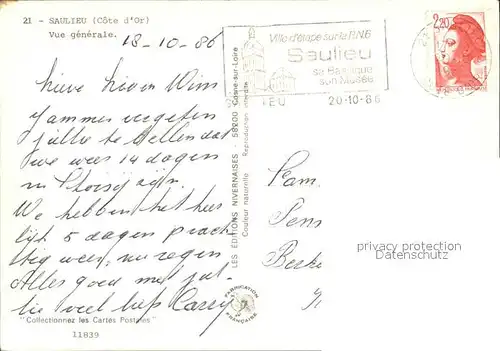 21 - SAULIEU (Côte d'Or)
Vue générale.
18-10-86
Ville d'étape sur la R.N.6
Saulieu
sa Basilique
son Musée
SAULIEU 20-10-86
2,20
Lieve hier Wim
Jammer vergeten
jullie te bellen dat
we weer 14 dagen
in Choisy zijn.
We hebben het heer
lijk 5 dagen prach
tig weer, nu regen
Alles goed met jul
lie veel liefs Carry
"Collectionnez les Cartes Postales"
11839
LES EDITIONS NIVERNAISES - 58200 Cosne-sur-Loire
Couleur naturelle Reproduction interdite
FABRICATION FRANÇAISE
Fam.
privacy protection
Datenschutz